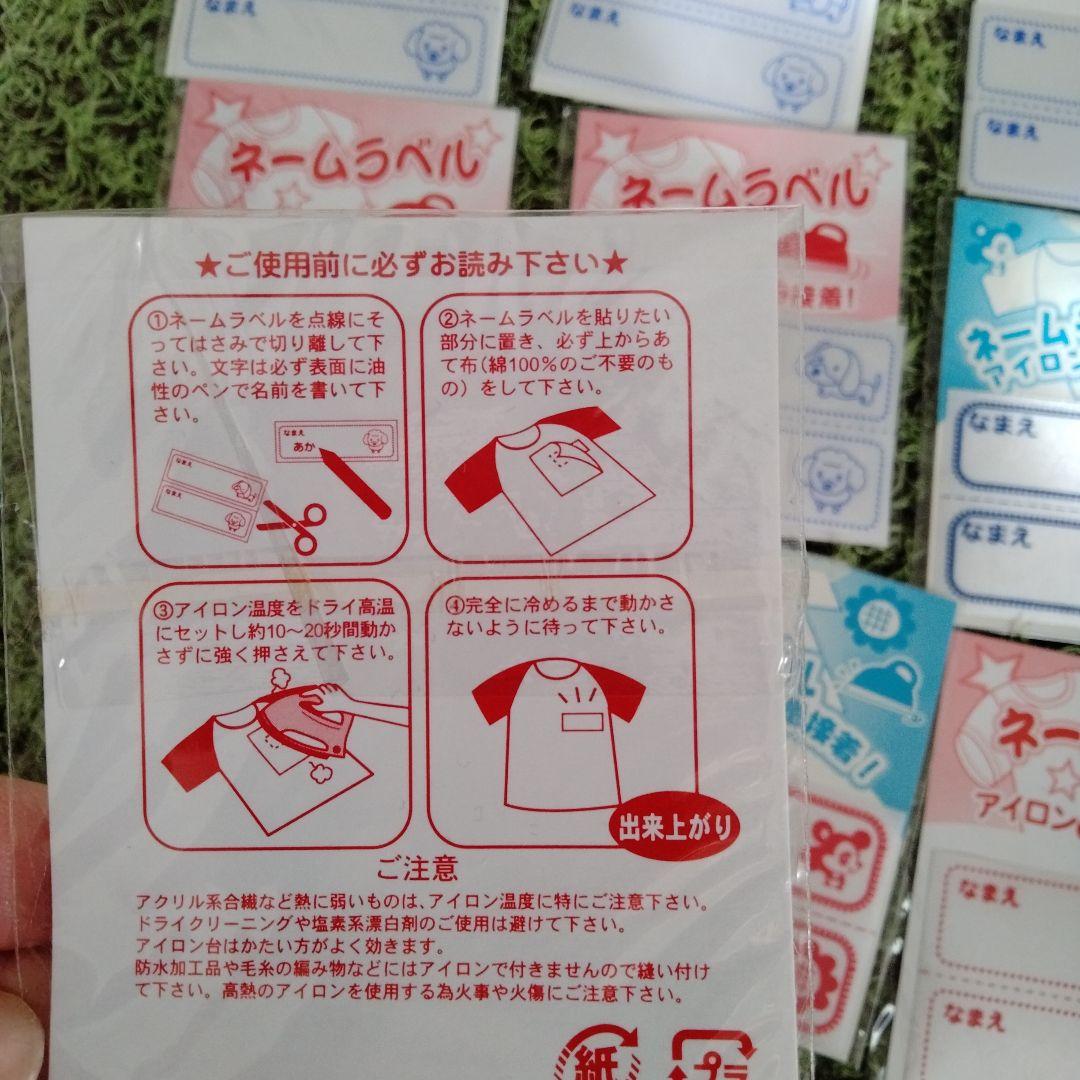 なまえ
なまえ
なまえ
なまえ
ネームラベル
ネームラベル
接着!
ネーム
アイロン
なまえ
なまえ
★ご使用前に必ずお読み下さい★
①ネームラベルを点線にそ
ってはさみで切り離して下
さい。文字は必ず表面に油
性のペンで名前を書いて下
さい。
なまえ
あか
なまえ
なまえ
②ネームラベルを貼りたい
部分に置き、必ず上からあ
て布(綿100%のご不要のも
の)をして下さい。
③アイロン温度をドライ高温
にセットし約10〜20秒間動か
さずに強く押さえて下さい。
④完全に冷めるまで動かさ
ないように待って下さい。
出来上がり
ご注意
アクリル系合繊など熱に弱いものは、アイロン温度に特にご注意下さい。
ドライクリーニングや塩素系漂白剤のご使用は避けて下さい。
アイロン台はかたい方がよく効きます。
防水加工品や毛糸の編み物などにはアイロンで付きませんので縫い付け
て下さい。高熱のアイロンを使用する為火事や火傷にご注意下さい。
紙
プラ
接着!
ネー
アイロン
なまえ
なまえ